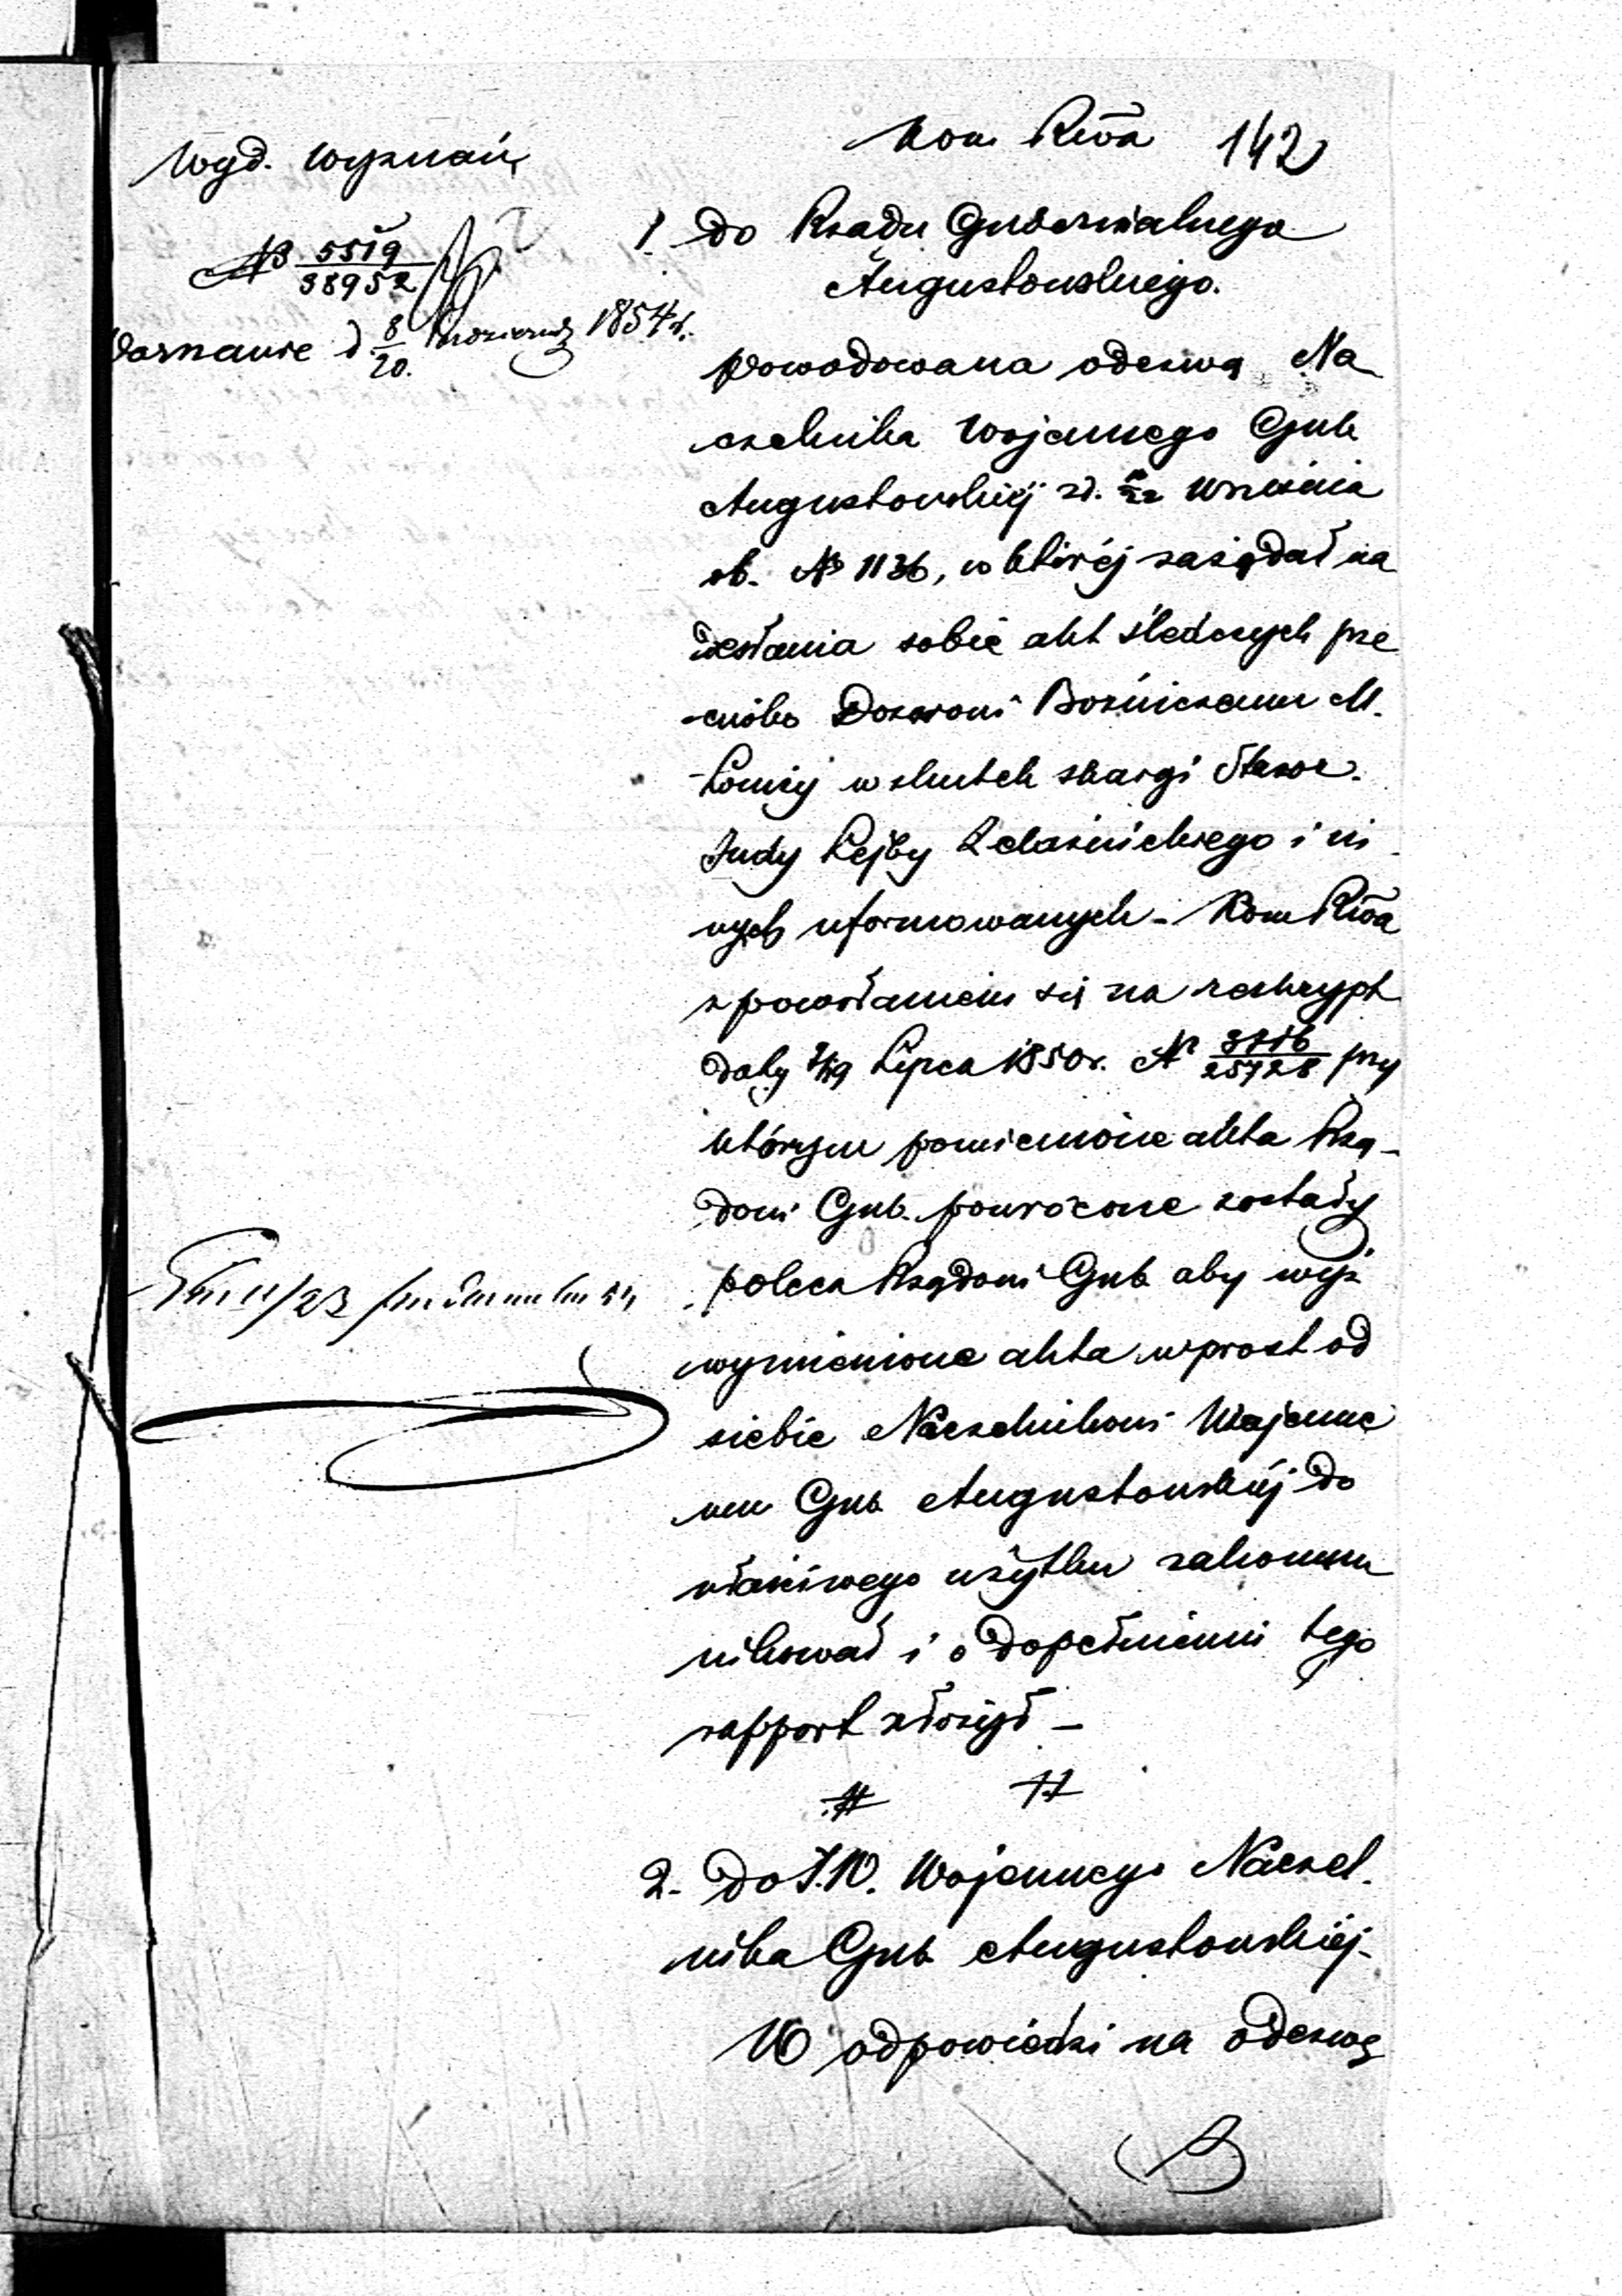 Kom Rwa 142
Wyd. Wyznań
№ 5519/38952
Warszawie d. 8/20. Październ 1854 r.
1. Do Rządu Gubernialnego
Augustowskiego.
Powodowana odezwą Na
czelnika Wojennego Gub
Augustowskiéj z d. Września
rb. № 1136, w któréj zażądał na
desłania sobie akt śledczych prze
-ciwko Dozorowi Bożniczemu M.
Łomży w skutek skargi Staroz.
Judy Lejby Zelaźnickiego i in
nych uformowanych - Kom Rwa
z powołaniem się na reskrypt
daty 7/19 Lipca 1850 r. № 3716/25728 przy
którym pomienione akta Rzą-
dowi Gub. powrócone zostały
poleca Rządowi Gub aby wyż
wymienione akta wprost od
siebie Naczelnikowi Wojenne
mu Gub Augustowskiéj do
właściwego użytku zakommu
nikował i o dopełnieniu tego
rapport złożył -
2. Do J.W. Wojennego Naczel.
nika Gub Augustowskiéj-
W odpowiedzi na odezwę